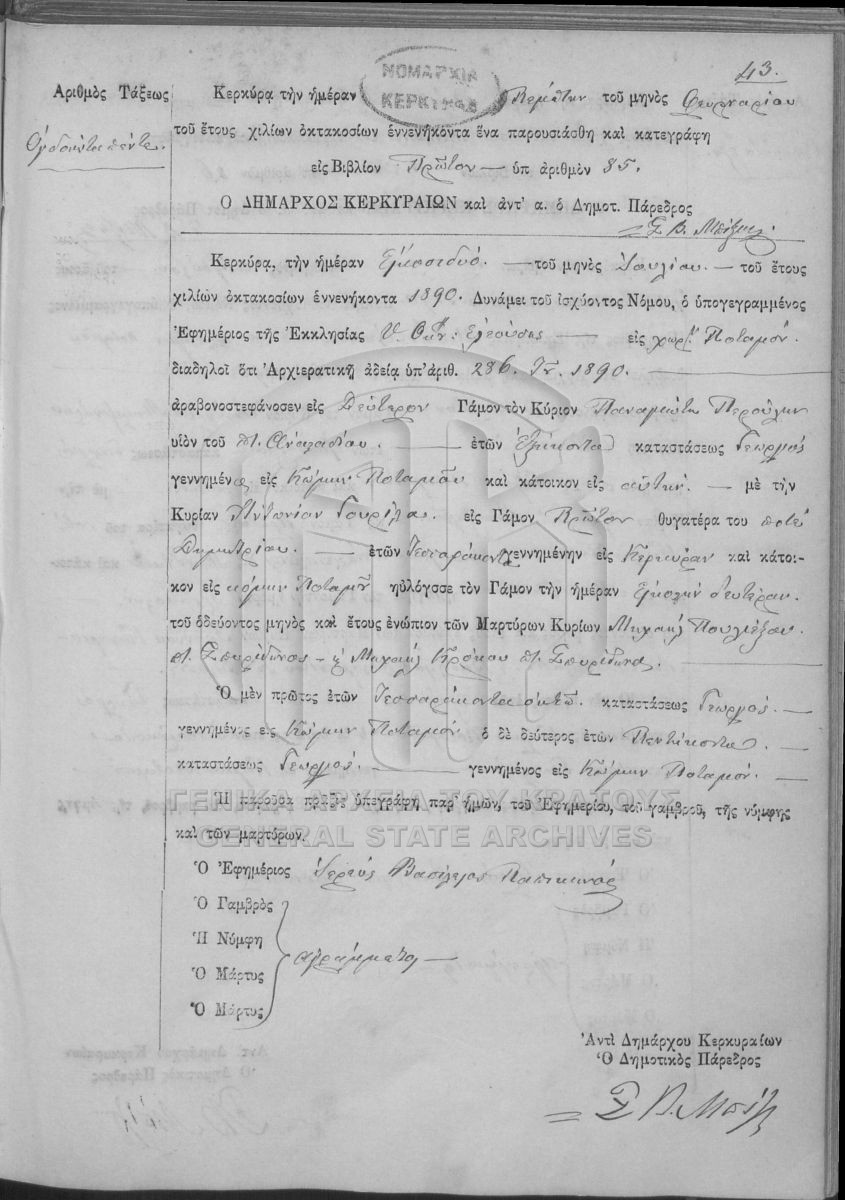 43.
ΝΟΜΑΡΧΙΑ
ΚΕΡΚΥΡΑΣ
Ἀριθμὸς Τάξεως
Ὀγδοήντα πέντε.
Κερκύρᾳ τὴν ἡμέραν Πέμπτην τοῦ μηνὸς Φευρουαρίου
τοῦ ἔτους χιλίων ὀκτακοσίων ἐννενήκοντα ἕνα παρουσιάσθη καὶ κατεγράφη
εἰς Βιβλίον Πρῶτον — ὑπ ἀριθμὸν 85.
Ο ΔΗΜΑΡΧΟΣ ΚΕΡΚΥΡΑΙΩΝ καὶ ἀντ' α. ὁ Δημοτ. Πάρεδρος
Σ. Β.
Κερκύρᾳ, τὴν ἡμέραν Εἴκοσι δυό. — τοῦ μηνὸς Ἰουλίου. — τοῦ ἔτους
χιλίων ὀκτακοσίων ἐννενήκοντα 1890. Δυνάμει τοῦ ἰσχύοντος Νόμου, ὁ ὑπογεγραμμένος
Ἐφημέριος τῆς Ἐκκλησίας Υ. Θ: Ἐλεούσης — εἰς χωρ. Ποταμόν.
διαδηλοῖ ὅτι Ἀρχιερατικῇ ἀδείᾳ ὑπ' ἀριθ. 286. 1890.
ἀραβονοστεφάνοσεν εἰς Δεύτερον Γάμον τὸν Κύριον Παναγιώτη Περούλην
υἱὸν τοῦ π. Ἀναστασίου. — ἐτῶν Ἑξήκοντα καταστάσεως Γεωργός
γεννημένος εἰς Κώμην Ποταμοῦ καὶ κάτοικον εἰς αὐτήν. — μὲ τὴν
Κυρίαν Ἀντωνίαν Γουρίλα. εἰς Γάμον Πρῶτον θυγατέρα του ποτέ
Δημητρίου. — ἐτῶν Τεσσαράκοντα γεννημένην εἰς Κέρκυραν καὶ κάτοι-
κον εἰς κώμην Ποταμοῦ ηὐλόγσσε τὸν Γάμον τὴν ἡμέραν Εἰκοστήν δευτέραν.
τοῦ ὁδεύοντος μηνὸς καὶ ἔτους ἐνώπιον τῶν Μαρτύρων Κυρίων Μιχαήλ
π. Σπυρίδωνος — κ Μιχαήλ Κρόκου π. Σπυρίδωνος.
Ὁ μὲν πρῶτος ἐτῶν Τεσσαράκοντα ὀκτώ. καταστάσεως Γεωργός. —
γεννημένος εἰς Κώμην Ποταμοῦ ὁ δὲ δεύτερος ἐτῶν Πεντήκοντα. —
καταστάσεως Γεωργός. — γεννημένος εἰς Κώμην Ποταμοῦ. —
Ἡ παροῦσα πρᾶξις ὑπεγράφη παρ' ἡμῶν, τοῦ Ἐφημερίου, τοῦ γαμβροῦ, τῆς νύμφης
καὶ τῶν μαρτύρων.
ΓΕΝΙΚΑ ΑΡΧΕΙΑ ΤΟΥ ΚΡΑΤΟΥΣ
GENERAL STATE ARCHIVES
Ὁ Ἐφημέριος Ἱερεύς Βασίλειος
Ὁ Γαμβρὸς
Ἡ Νύμφη
Ὁ Μάρτυς
Ὁ Μάρτυς
ἀγράμματοι —
Ἀντὶ Δημάρχου Κερκυραίων
Ὁ Δημοτικὸς Πάρεδρος
Σ Β.